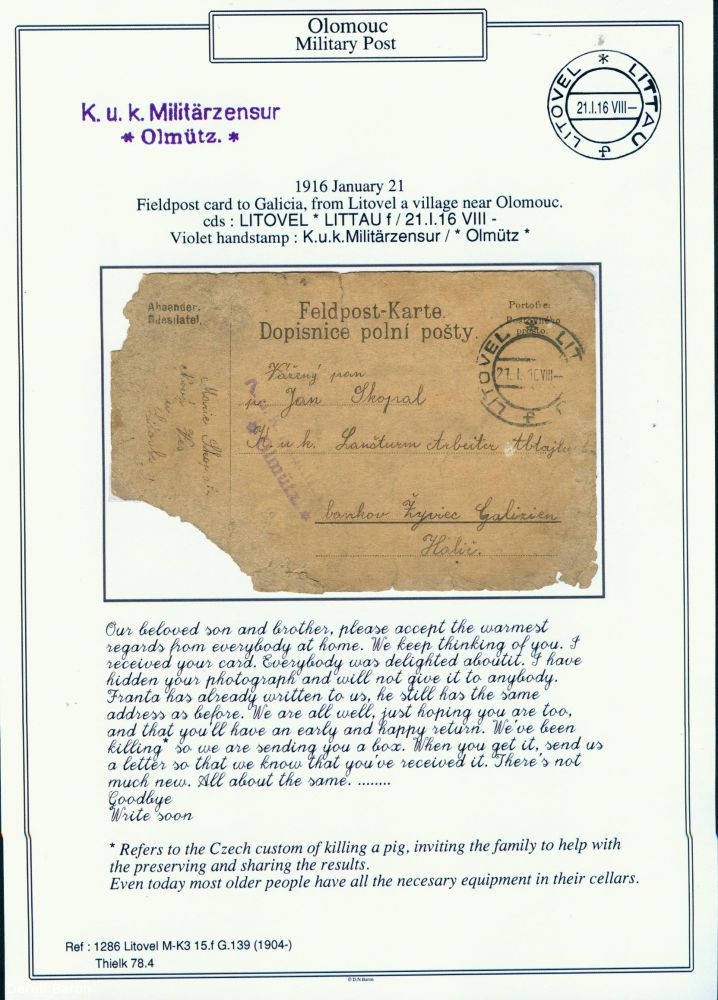 Olomouc
Military Post
K. u. k. Militärzensur
* Olmütz. *
LITOVEL * LITTAU
21.I.16 VIII–
f
1916 January 21
Fieldpost card to Galicia, from Litovel a village near Olomouc.
cds : LITOVEL * LITTAU f / 21.I.16 VIII -
Violet handstamp : K.u.k.Militärzensur / * Olmütz *
Absender.
Odesílatel.
Feldpost-Karte.
Dopisnice polní pošty.
Portofrei
prosto.
LITOVEL * LIT
21. I. 16 VIII–
f
Marie
Nová Ves
Vážený pan
Jan Skopal
K. u k. Lansturm Arbeiter
Olmütz. *
bankov Żyviec Galizien
Halič.
Our beloved son and brother, please accept the warmest
regards from everybody at home. We keep thinking of you. I
received your card. Everybody was delighted aboutit. I have
hidden your photograph and will not give it to anybody.
Franta has already written to us, he still has the same
address as before. We are all well, just hoping you are too,
and that you'll have an early and happy return. We've been
killing* so we are sending you a box. When you get it, send us
a letter so that we know that you've received it. There's not
much new. All about the same. ........
Goodbye
Write soon
* Refers to the Czech custom of killing a pig, inviting the family to help with
the preserving and sharing the results.
Even today most older people have all the necesary equipment in their cellars.
Ref : 1286 Litovel M-K3 15.f G.139 (1904-)
Thielk 78.4
© D.N.Baron